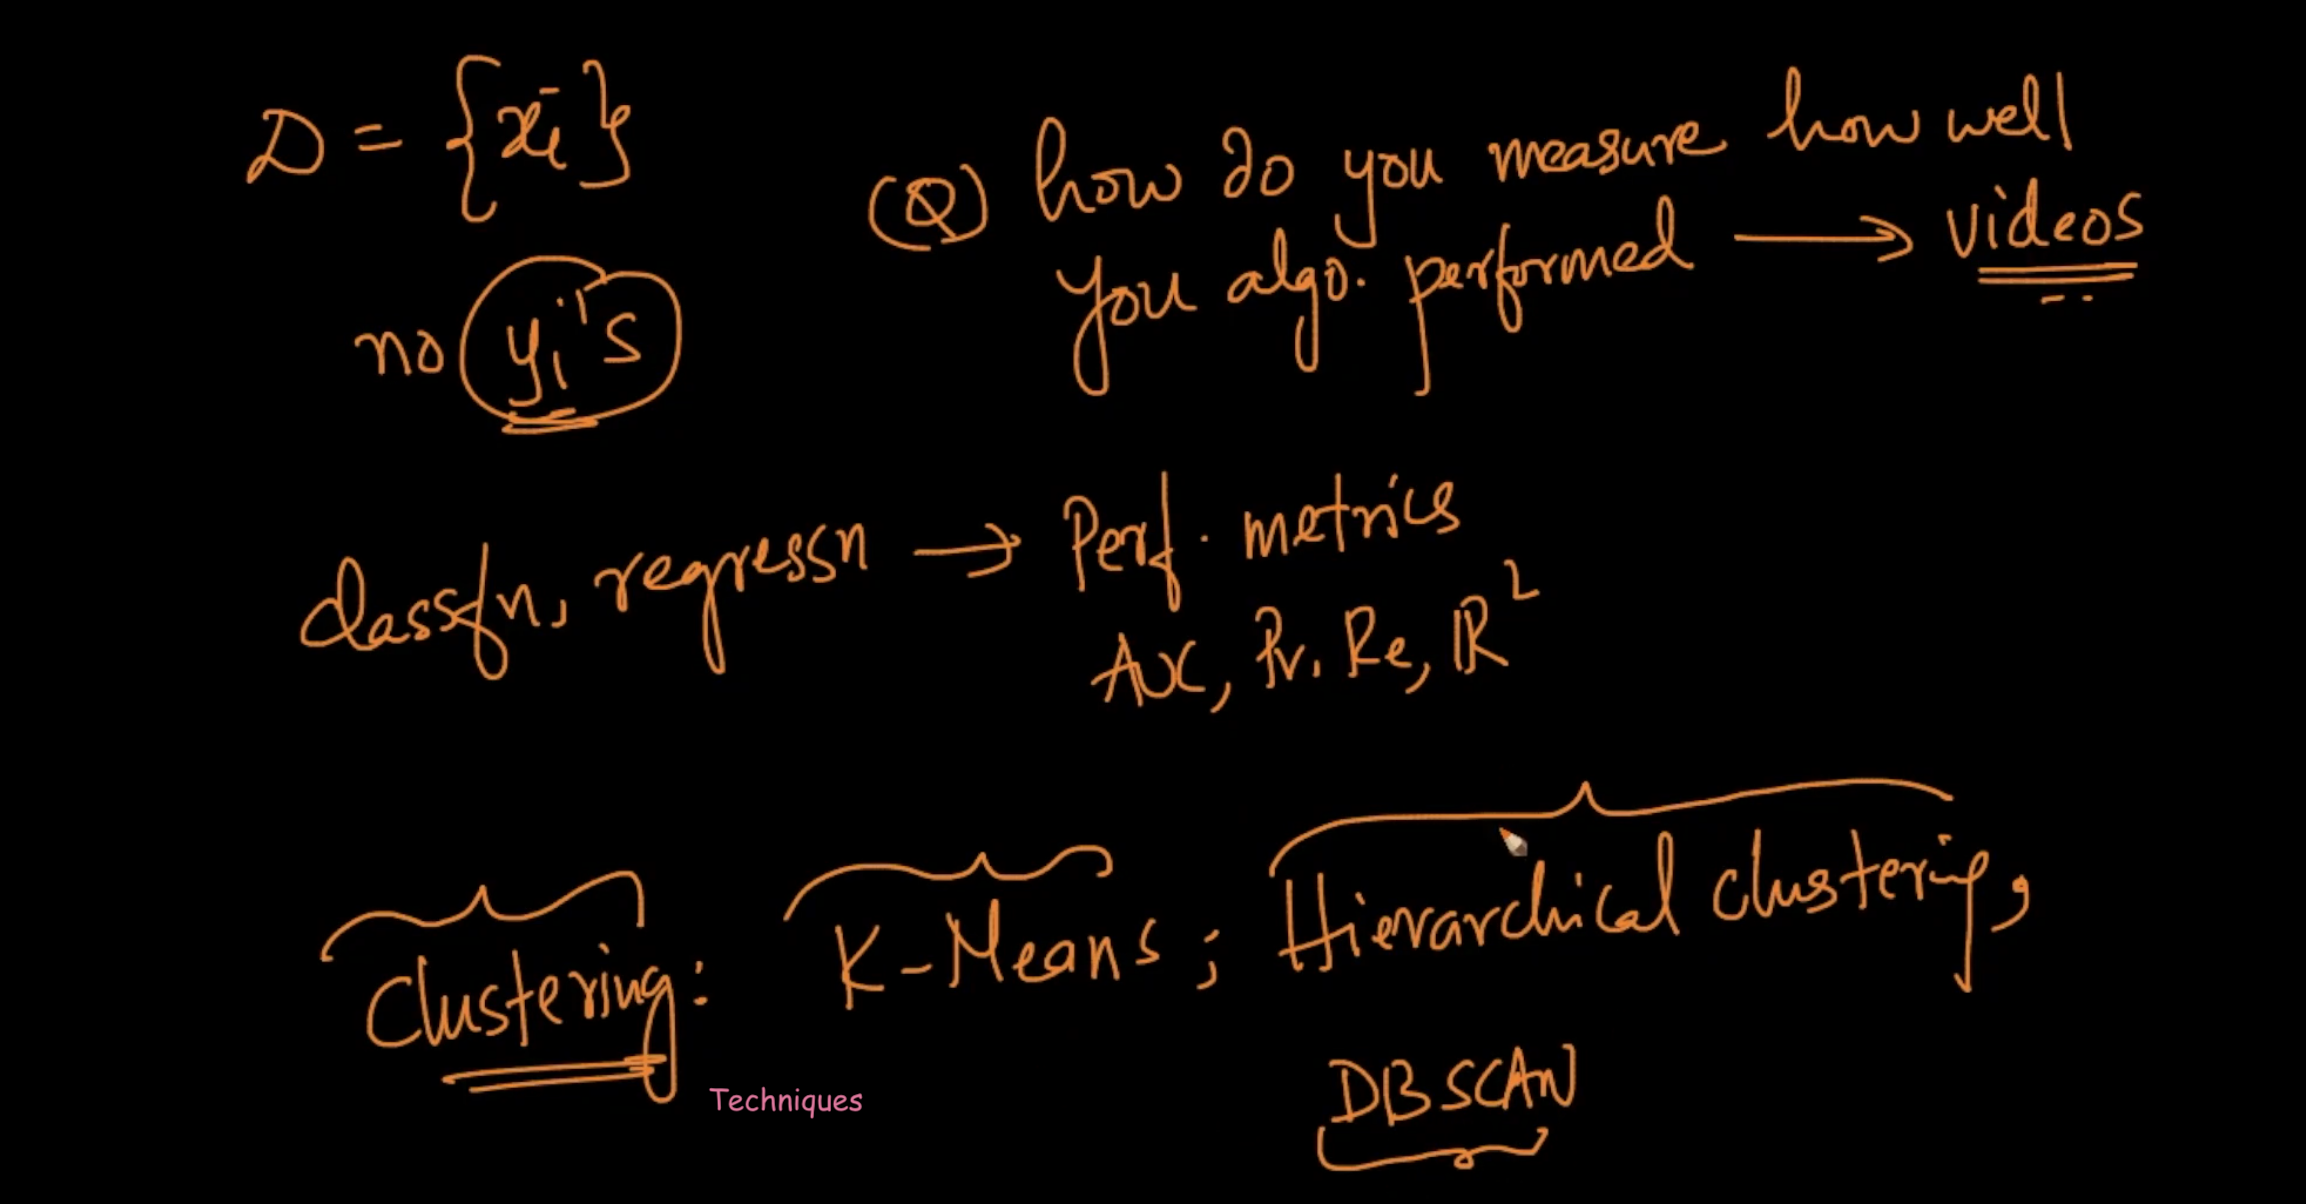 D = {xi}
(Q) how do you measure how well
you algo. performed → videos
no yi's
classfn, regressn → Perf. metrics
AUC, Pr. Re, R²
Clustering: K-Means; Hierarchical clustering,
Techniques
DBSCAN